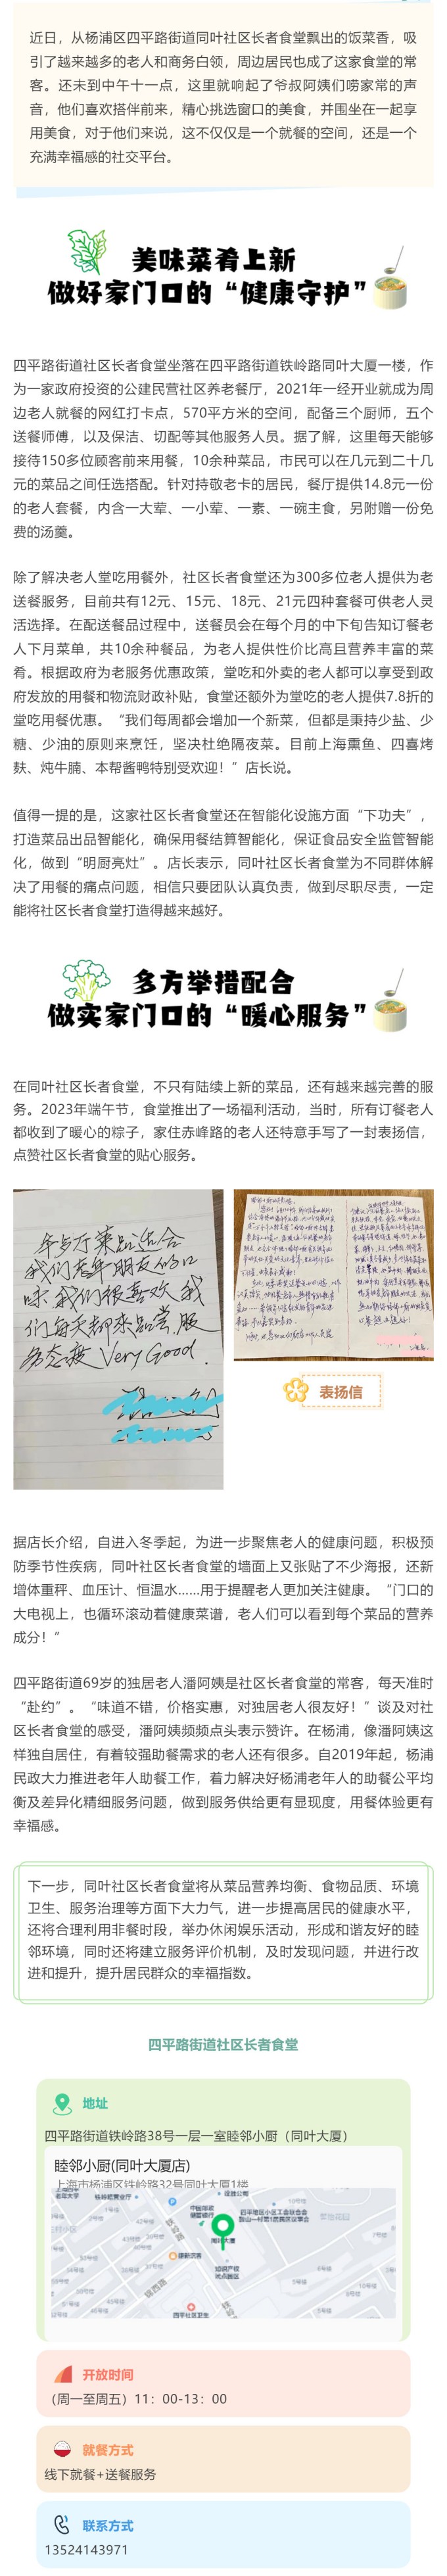 近日，从杨浦区四平路街道同叶社区长者食堂飘出的饭菜香，吸
引了越来越多的老人和商务白领，周边居民也成了这家食堂的常
客。还未到中午十一点，这里就响起了爷叔阿姨们唠家常的声
音，他们喜欢搭伴前来，精心挑选窗口的美食，并围坐在一起享
用美食，对于他们来说，这不仅仅是一个就餐的空间，还是一个
充满幸福感的社交平台。
美味菜肴上新
做好家门口的“健康守护”
四平路街道社区长者食堂坐落在四平路街道铁岭路同叶大厦一楼，作
为一家政府投资的公建民营社区养老餐厅，2021年一经开业就成为周
边老人就餐的网红打卡点，570平方米的空间，配备三个厨师，五个
送餐师傅，以及保洁、切配等其他服务人员。据了解，这里每天能够
接待150多位顾客前来用餐，10余种菜品，市民可以在几元到二十几
元的菜品之间任选搭配。针对持敬老卡的居民，餐厅提供14.8元一份
的老人套餐，内含一大荤、一小荤、一素、一碗主食，另附赠一份免
费的汤羹。
除了解决老人堂吃用餐外，社区长者食堂还为300多位老人提供为老
送餐服务，目前共有12元、15元、18元、21元四种套餐可供老人灵
活选择。在配送餐品过程中，送餐员会在每个月的中下旬告知订餐老
人下月菜单，共10余种餐品，为老人提供性价比高且营养丰富的菜
肴。根据政府为老服务优惠政策，堂吃和外卖的老人都可以享受到政
府发放的用餐和物流财政补贴，食堂还额外为堂吃的老人提供7.8折的
堂吃用餐优惠。“我们每周都会增加一个新菜，但都是秉持少盐、少
糖、少油的原则来烹饪，坚决杜绝隔夜菜。目前上海熏鱼、四喜烤
麸、炖牛腩、本帮酱鸭特别受欢迎！”店长说。
值得一提的是，这家社区长者食堂还在智能化设施方面“下功夫”，
打造菜品出品智能化，确保用餐结算智能化，保证食品安全监管智能
化，做到“明厨亮灶”。店长表示，同叶社区长者食堂为不同群体解
决了用餐的痛点问题，相信只要团队认真负责，做到尽职尽责，一定
能将社区长者食堂打造得越来越好。
多方举措配合
做实家门口的“暖心服务”
在同叶社区长者食堂，不只有陆续上新的菜品，还有越来越完善的服
务。2023年端午节，食堂推出了一场福利活动，当时，所有订餐老人
都收到了暖心的粽子，家住赤峰路的老人还特意手写了一封表扬信，
点赞社区长者食堂的贴心服务。
菜品适合
我们老年朋友的口
味.我们很喜欢我
们每天都来品尝.服
务态度Very Good.
表扬信
据店长介绍，自进入冬季起，为进一步聚焦老人的健康问题，积极预
防季节性疾病，同叶社区长者食堂的墙面上又张贴了不少海报，还新
增体重秤、血压计、恒温水……用于提醒老人更加关注健康。“门口的
大电视上，也循环滚动着健康菜谱，老人们可以看到每个菜品的营养
成分！”
四平路街道69岁的独居老人潘阿姨是社区长者食堂的常客，每天准时
“赴约”。“味道不错，价格实惠，对独居老人很友好！”谈及对社
区长者食堂的感受，潘阿姨频频点头表示赞许。在杨浦，像潘阿姨这
样独自居住，有着较强助餐需求的老人还有很多。自2019年起，杨浦
民政大力推进老年人助餐工作，着力解决好杨浦老年人的助餐公平均
衡及差异化精细服务问题，做到服务供给更有显现度，用餐体验更有
幸福感。
下一步，同叶社区长者食堂将从菜品营养均衡、食物品质、环境
卫生、服务治理等方面下大力气，进一步提高居民的健康水平，
还将合理利用非餐时段，举办休闲娱乐活动，形成和谐友好的睦
邻环境，同时还将建立服务评价机制，及时发现问题，并进行改
进和提升，提升居民群众的幸福指数。
四平路街道社区长者食堂
地址
四平路街道铁岭路38号一层一室睦邻小厨（同叶大厦）
睦邻小厨(同叶大厦店)
上海市杨浦区铁岭路32号同叶大厦1楼
康新宾客
锦西路
四平社区卫生
开放时间
（周一至周五）11：00-13：00
就餐方式
线下就餐+送餐服务
联系方式
13524143971